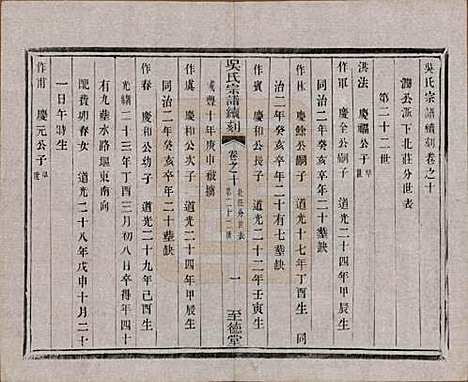 吳氏宗譜續刻卷之十
潤公派下北莊分世表
第二十二世
洪法　慶福公子 世
作軍　慶全公嗣子　道光二十四年甲辰生
同治二年癸亥卒年二十墓缺
作林　慶餘公嗣子　道光十七年丁酉生　同
治二年癸亥卒年二十有七墓缺
作賓　慶和公長子　道光二十二年壬寅生
咸豐十年庚申被擄
吳氏宗譜續刻
卷之十
北莊分世表
第二十二世
一
至德堂
作虞　慶和公次子　道光二十四年甲辰生
同治二年癸亥卒年二十墓缺
作春　慶和公幼子　道光二十九年己酉生
光緒二十三年丁酉三月初八日卒得年四十
有九葬水路堰東南向
配費卯春女　道光二十八年戊申十月二十
一日午時生
作甫　慶元公子 世